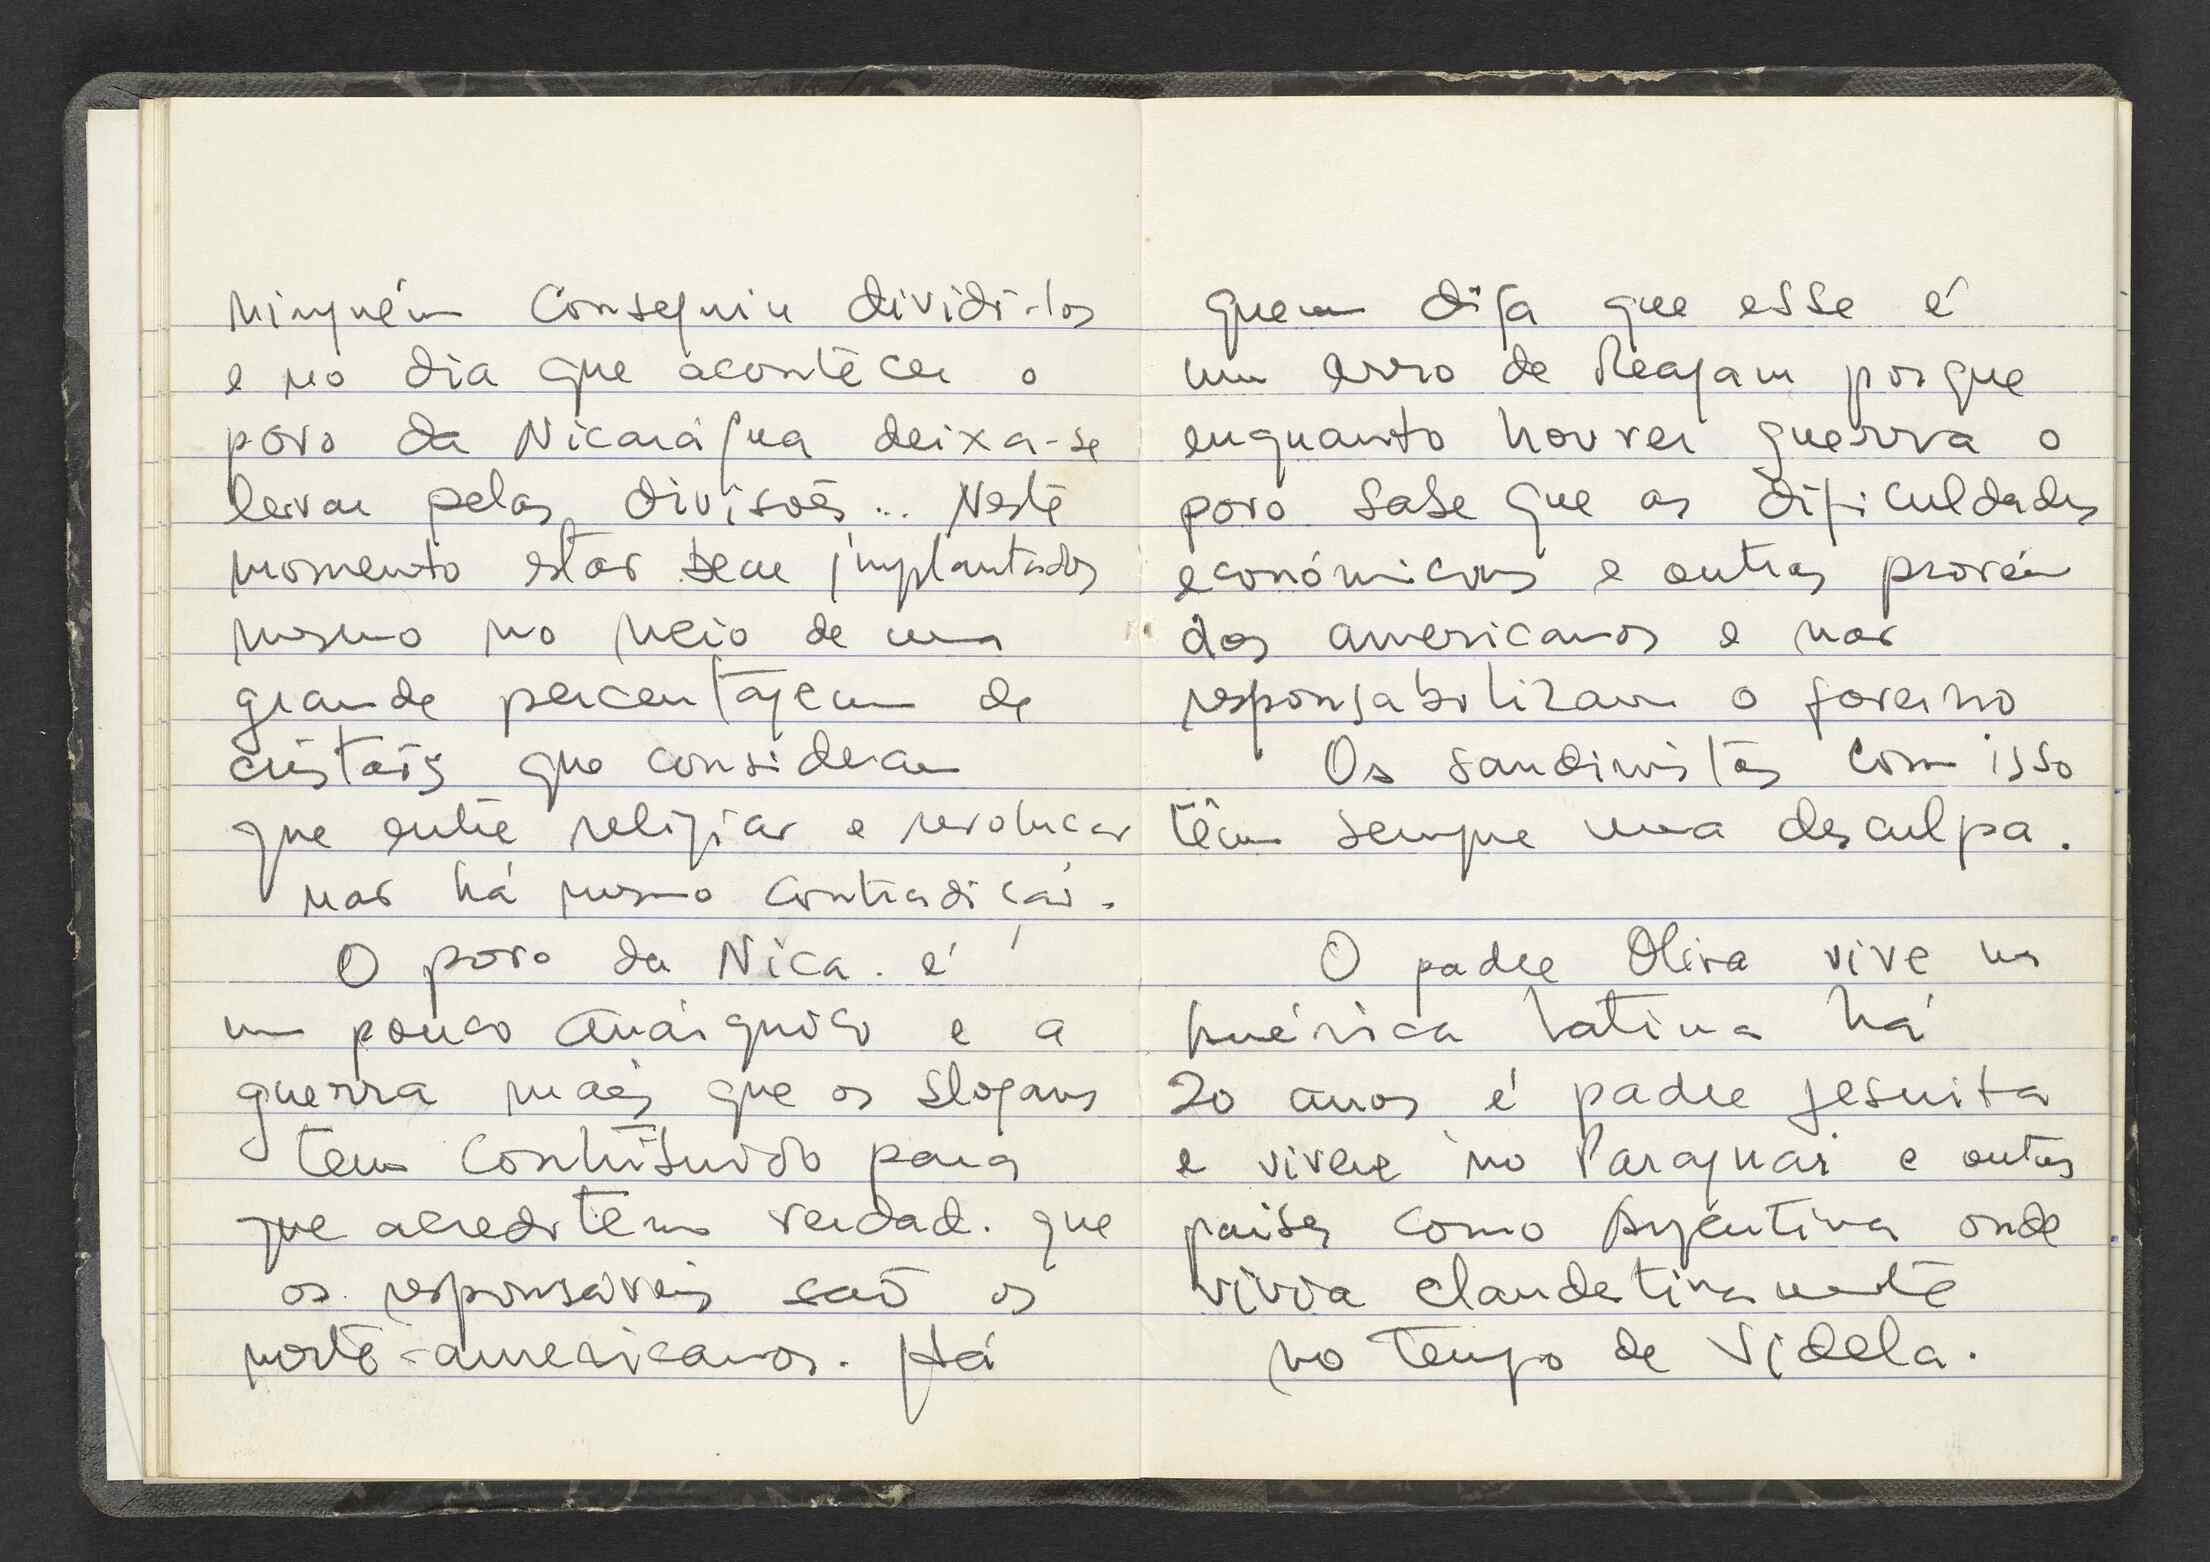 ninguém conseguiu dividi-los
e no dia que acontecer o
povo da Nicarágua deixa-se
levar pelas divisões... Neste
momento estão bem implantados
mesmo no meio de uma
grande percentagem de
cristãos que consideram
que entre religião e revolução
não há mesmo contradição.
O povo da Nica. é
um pouco anárquico e a
guerra mais que os slogans
tem contribuido para
que acreditem verdad. que
os responsáveis são os
norte-americanos. Há
quem diga que esse é
um erro de Reagan porque
enquanto houver guerra o
povo sabe que as dificuldades
económicas e outras provém
dos americanos e não
responsabilizam o governo
Os sandinistas com isso
têm sempre uma desculpa.
O padre Oliva vive na
América Latina há
20 anos é padre jesuita
e viveu no Paraguai e outros
paises como Argentina onde
vivia clandetinamente
no tempo de Videla.